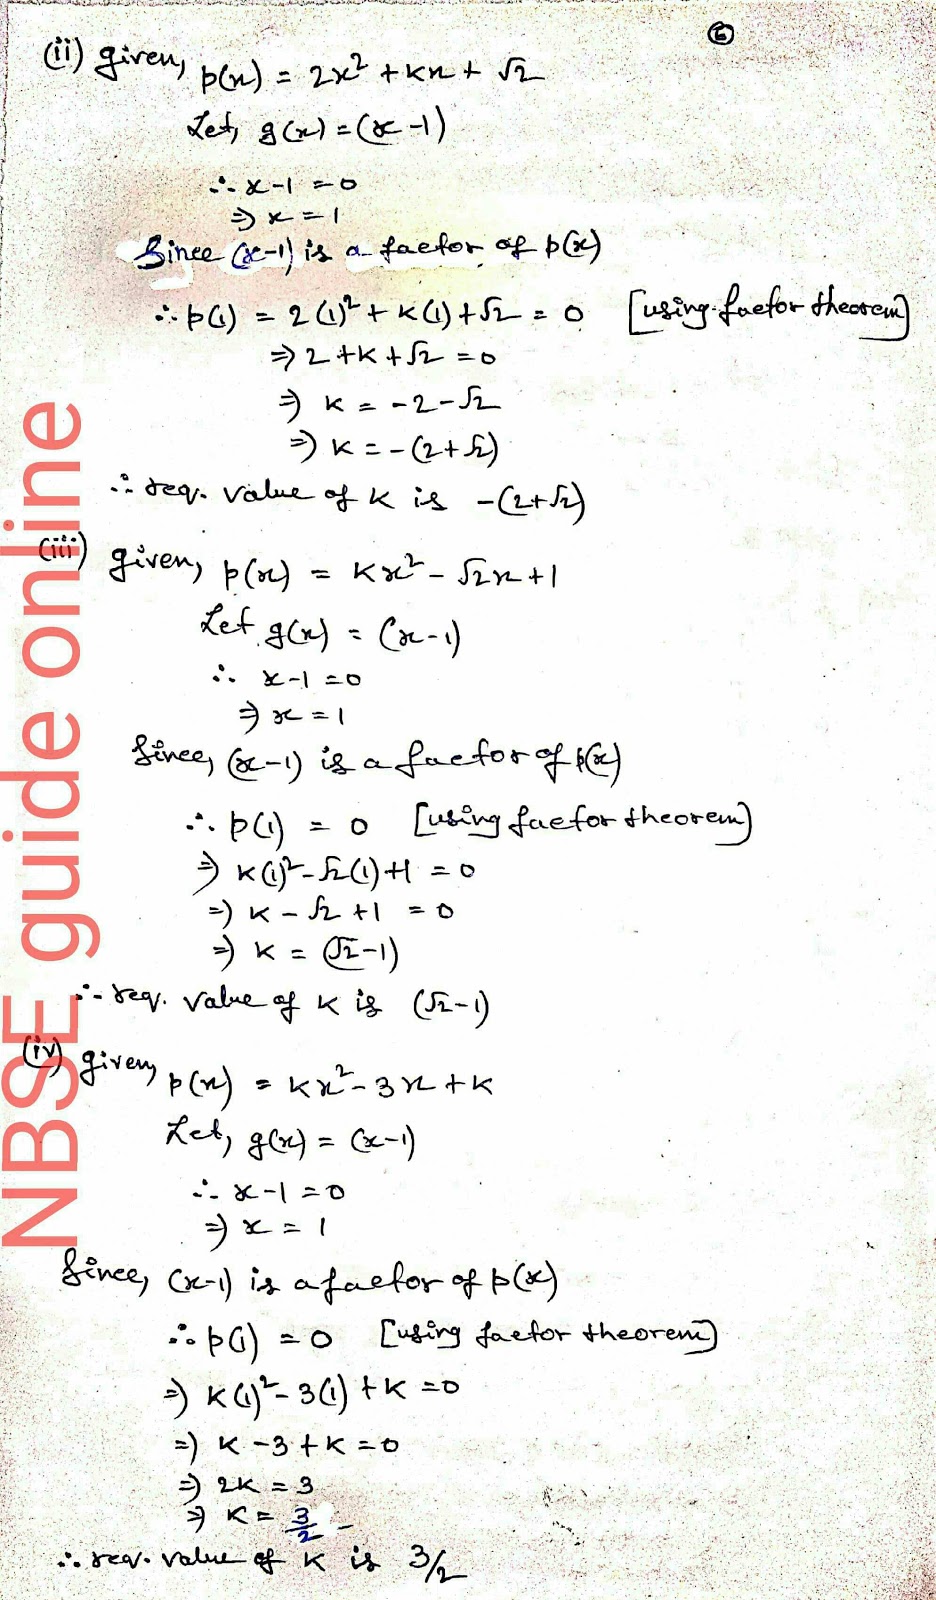 6
(ii) given, p(x) = 2x² + kx + √2
Let, g(x) = (x-1)
∴ x-1 = 0
⇒ x = 1
Since (x-1) is a factor of p(x)
∴ p(1) = 2(1)² + k(1) + √2 = 0 [using factor theorem]
⇒ 2 + k + √2 = 0
⇒ k = -2-√2
⇒ k = -(2+√2)
∴ req. value of k is -(2+√2)
(iii) given, p(x) = kx² - √2x + 1
Let g(x) = (x-1)
∴ x-1 = 0
⇒ x = 1
Since, (x-1) is a factor of p(x)
∴ p(1) = 0 [using factor theorem]
⇒ k(1)² - √2(1) + 1 = 0
⇒ k - √2 + 1 = 0
⇒ k = (√2-1)
∴ req. value of k is (√2-1)
(iv) given, p(x) = kx² - 3x + k
Let, g(x) = (x-1)
∴ x-1 = 0
⇒ x = 1
Since, (x-1) is a factor of p(x)
∴ p(1) = 0 [using factor theorem]
⇒ k(1)² - 3(1) + k = 0
⇒ k - 3 + k = 0
⇒ 2k = 3
⇒ k = 3/2
∴ req. value of k is 3/2
NBSE guide online